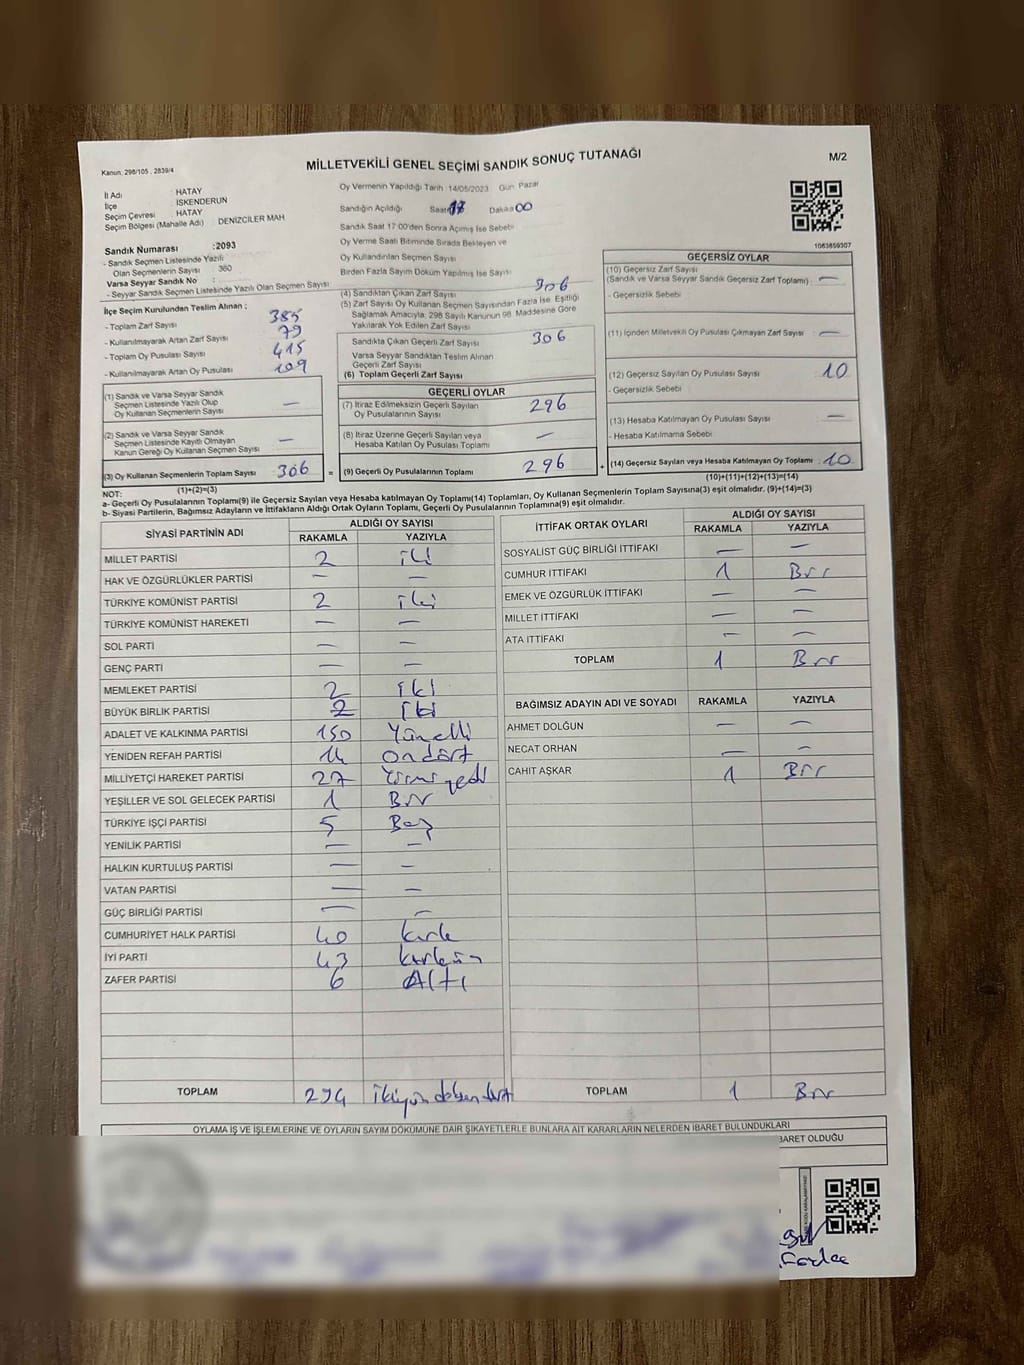 MİLLETVEKİLİ GENEL SEÇİMİ SANDIK SONUÇ TUTANAĞI
M/2
Kanun, 298/105 , 2839/4
İl Adı : HATAY
İlçe : İSKENDERUN
Seçim Çevresi : HATAY
Seçim Bölgesi (Mahalle Adı) : DENİZCİLER MAH
Sandık Numarası :2093
- Sandık Seçmen Listesinde Yazılı
Olan Seçmenlerin Sayısı : 360
Varsa Seyyar Sandık No :
- Seyyar Sandık Seçmen Listesinde Yazılı Olan Seçmen Sayısı :
İlçe Seçim Kurulundan Teslim Alınan ;
- Toplam Zarf Sayısı 385
- Kullanılmayarak Artan Zarf Sayısı 79
- Toplam Oy Pusulası Sayısı 415
- Kullanılmayarak Artan Oy Pusulası 109
(1) Sandık ve Varsa Seyyar Sandık
Seçmen Listesinde Yazılı Olup
Oy Kullanan Seçmenlerin Sayısı —
(2) Sandık ve Varsa Seyyar Sandık
Seçmen Listesinde Kayıtlı Olmayan
Kanun Gereği Oy Kullanan Seçmen Sayısı —
(3) Oy Kullanan Seçmenlerin Toplam Sayısı 306 =
(1)+(2)=(3)
Oy Vermenin Yapıldığı Tarih :14/05/2023 Gün: Pazar
Sandığın Açıldığı Saat 17 Dakika 00
Sandık Saat 17:00'den Sonra Açımış İse Sebebi
Oy Verme Saati Bitiminde Sırada Bekleyen ve
Oy Kullandırılan Seçmen Sayısı
Birden Fazla Sayım Döküm Yapılmış İse Sayısı
(4) Sandıktan Çıkan Zarf Sayısı 306
(5) Zarf Sayısı Oy Kullanan Seçmen Sayısından Fazla İse, Eşitliği
Sağlamak Amacıyla, 298 Sayılı Kanunun 98. Maddesine Göre
Yakılarak Yok Edilen Zarf Sayısı
Sandıkta Çıkan Geçerli Zarf Sayısı 306
Varsa Seyyar Sandıktan Teslim Alınan
Geçerli Zarf Sayısı
(6) Toplam Geçerli Zarf Sayısı
GEÇERLİ OYLAR
(7) İtiraz Edilmeksizin Geçerli Sayılan
Oy Pusulalarının Sayısı 296
(8) İtiraz Üzerine Geçerli Sayılan veya
Hesaba Katılan Oy Pusulası Toplamı —
(9) Geçerli Oy Pusulalarının Toplamı 296 +
1063859307
GEÇERSİZ OYLAR
(10) Geçersiz Zarf Sayısı
(Sandık ve Varsa Seyyar Sandık Geçersiz Zarf Toplamı) —
- Geçersizlik Sebebi
(11) İçinden Milletvekili Oy Pusulası Çıkmayan Zarf Sayısı —
(12) Geçersiz Sayılan Oy Pusulası Sayısı 10
- Geçersizlik Sebebi
(13) Hesaba Katılmayan Oy Pusulası Sayısı —
- Hesaba Katılmama Sebebi
(14) Geçersiz Sayılan veya Hesaba Katılmayan Oy Toplamı : 10
(10)+(11)+(12)+(13)=(14)
NOT:
a- Geçerli Oy Pusulalarının Toplamı(9) ile Geçersiz Sayılan veya Hesaba katılmayan Oy Toplamı(14) Toplamları, Oy Kullanan Seçmenlerin Toplam Sayısına(3) eşit olmalıdır. (9)+(14)=(3)
b- Siyasi Partilerin, Bağımsız Adayların ve İttifakların Aldığı Ortak Oyların Toplamı, Geçerli Oy Pusulalarının Toplamına(9) eşit olmalıdır.
SİYASİ PARTİNİN ADI ALDIĞI OY SAYISI
RAKAMLA YAZIYLA
MİLLET PARTİSİ 2 iki
HAK VE ÖZGÜRLÜKLER PARTİSİ — —
TÜRKİYE KOMÜNİST PARTİSİ 2 iki
TÜRKİYE KOMÜNİST HAREKETİ — —
SOL PARTİ — —
GENÇ PARTİ — —
MEMLEKET PARTİSİ 2 iki
BÜYÜK BİRLİK PARTİSİ 2 iki
ADALET VE KALKINMA PARTİSİ 150 Yüzelli
YENİDEN REFAH PARTİSİ 14 ondört
MİLLİYETÇİ HAREKET PARTİSİ 27 Yirmi yedi
YEŞİLLER VE SOL GELECEK PARTİSİ 1 Bir
TÜRKİYE İŞÇİ PARTİSİ 5 Beş
YENİLİK PARTİSİ — —
HALKIN KURTULUŞ PARTİSİ — —
VATAN PARTİSİ — —
GÜÇ BİRLİĞİ PARTİSİ — —
CUMHURİYET HALK PARTİSİ 40 kırk
İYİ PARTİ 43 kırküç
ZAFER PARTİSİ 6 Altı
TOPLAM 294 ikiyüzdoksandört
İTTİFAK ORTAK OYLARI ALDIĞI OY SAYISI
RAKAMLA YAZIYLA
SOSYALİST GÜÇ BİRLİĞİ İTTİFAKI — —
CUMHUR İTTİFAKI 1 Bir
EMEK VE ÖZGÜRLÜK İTTİFAKI — —
MİLLET İTTİFAKI — —
ATA İTTİFAKI — —
TOPLAM 1 Bir
BAĞIMSIZ ADAYIN ADI VE SOYADI RAKAMLA YAZIYLA
AHMET DOLĞUN — —
NECAT ORHAN — —
CAHİT AŞKAR 1 Bir
TOPLAM 1 Bir
OYLAMA İŞ VE İŞLEMLERİNE VE OYLARIN SAYIM DÖKÜMÜNE DAİR ŞİKAYETLERLE BUNLARA AİT KARARLARIN NELERDEN İBARET BULUNDUKLARI
BARET OLDUĞU